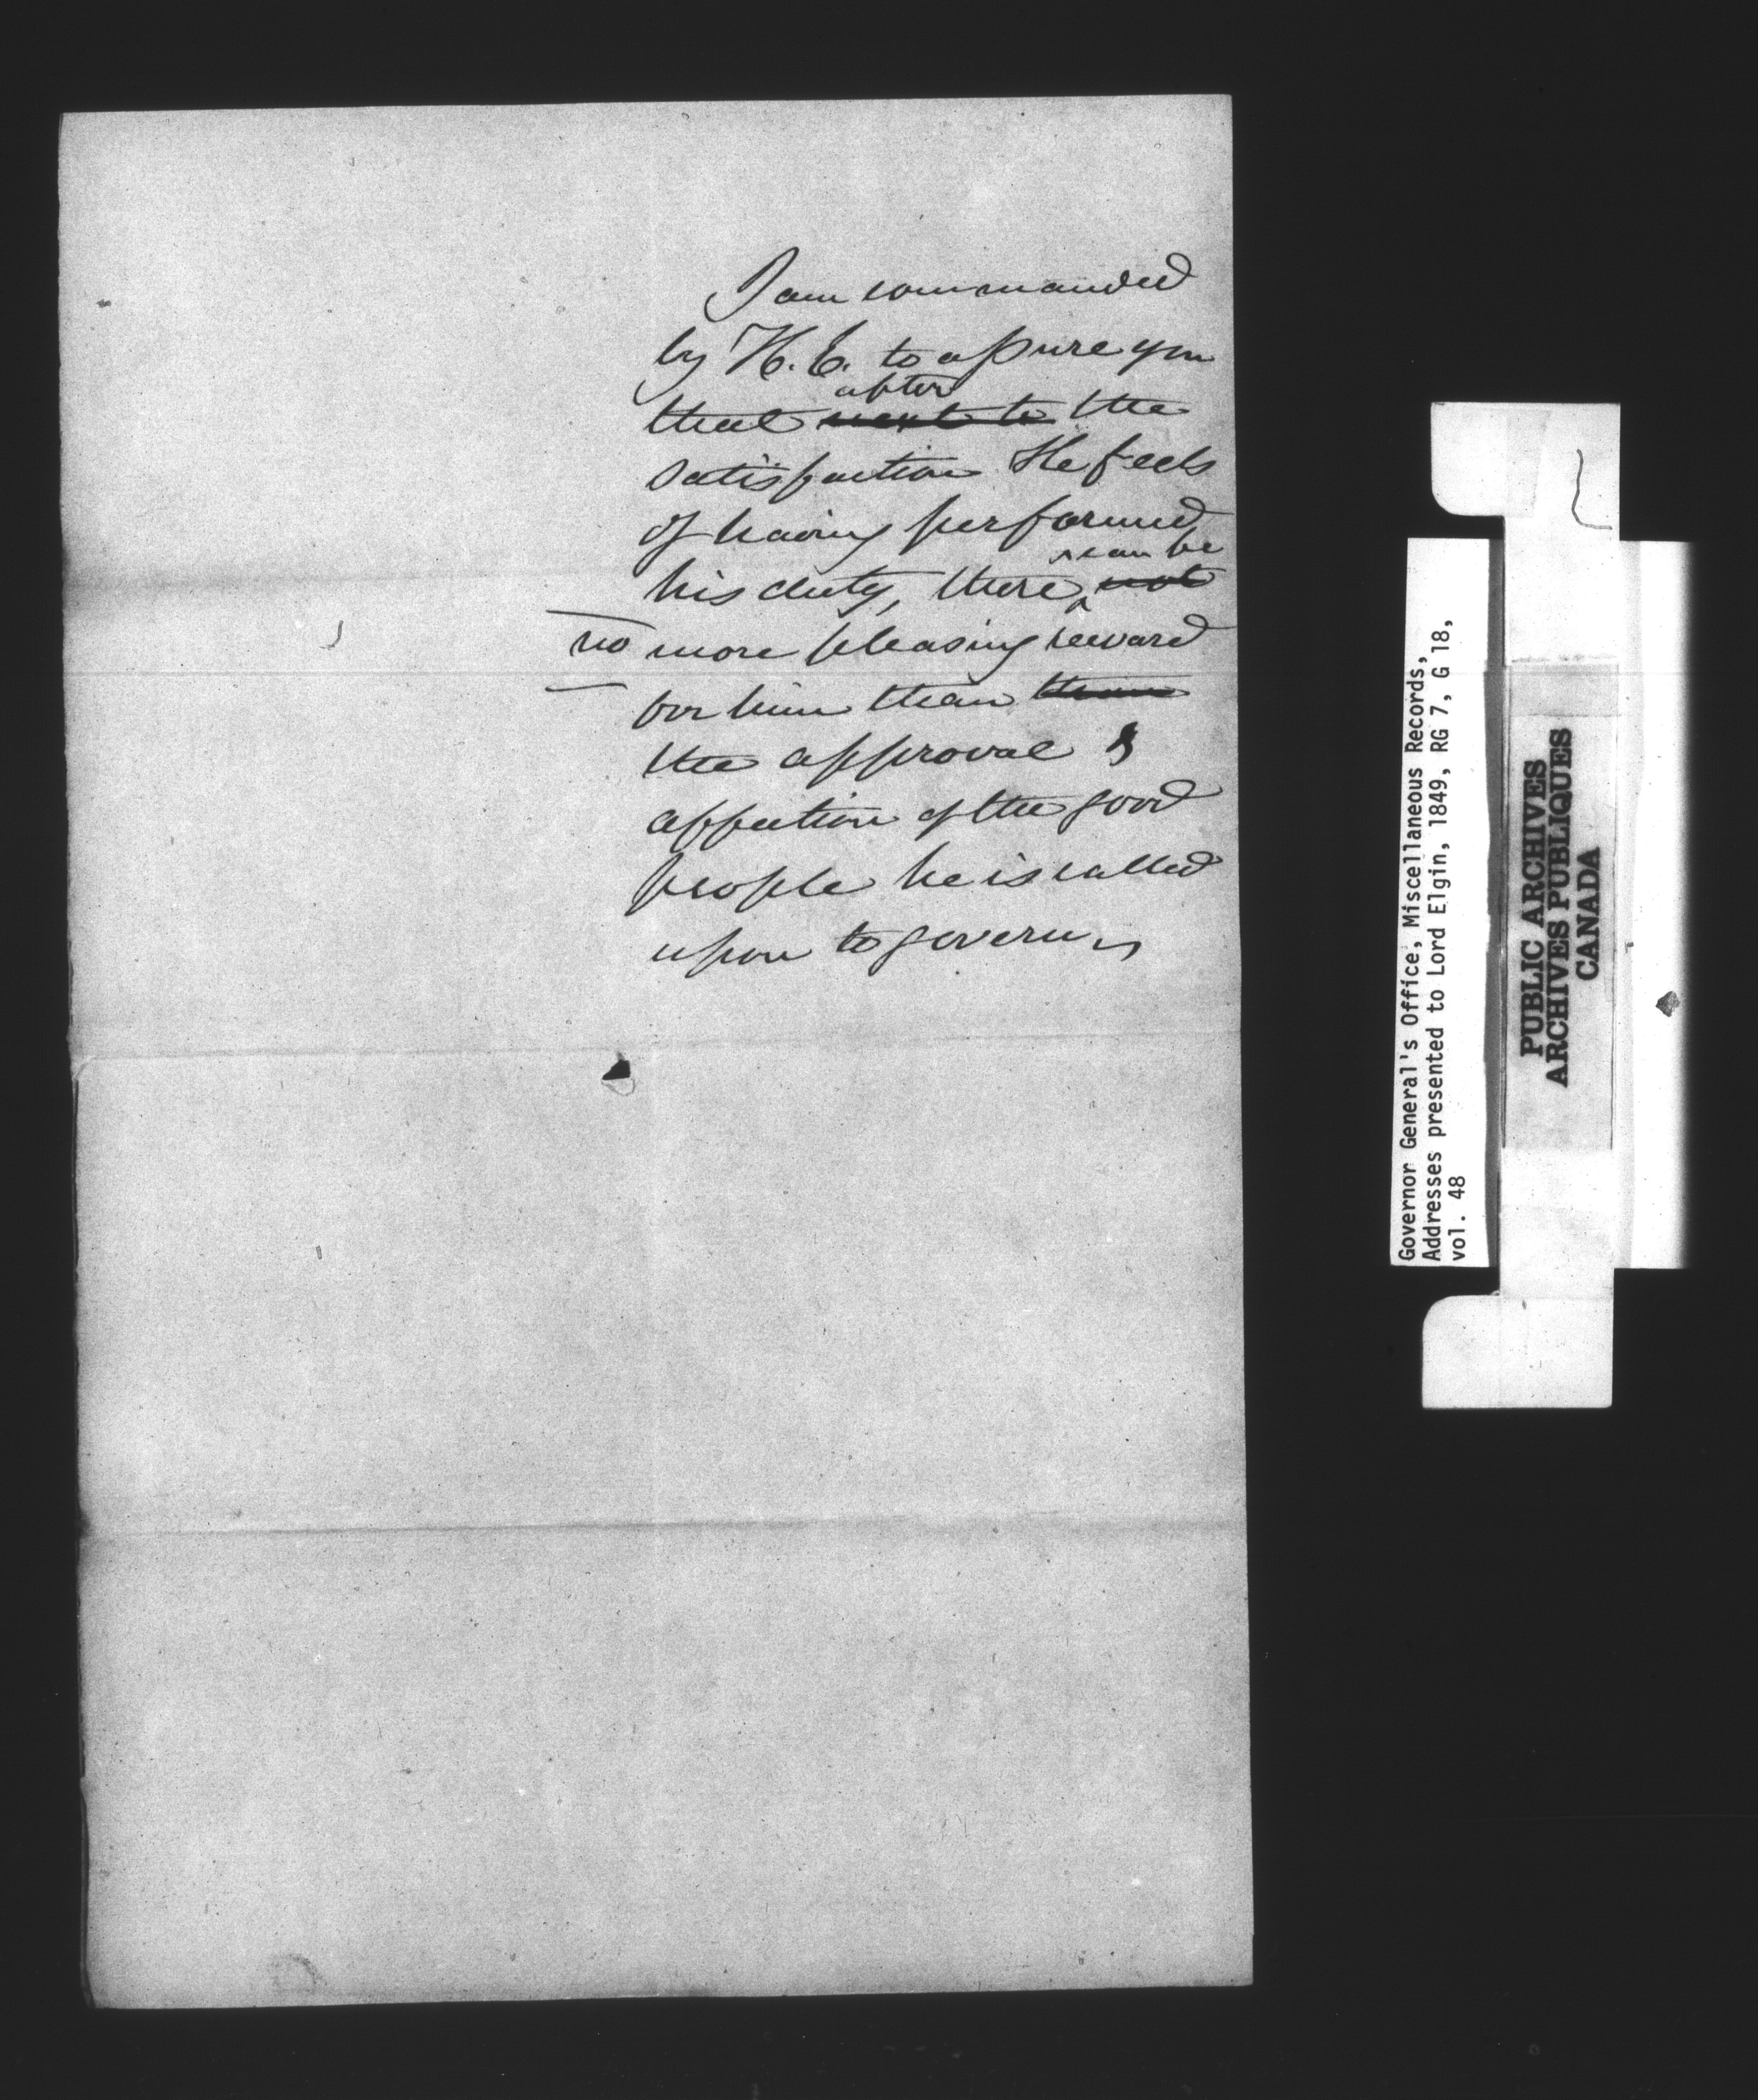 I am commanded
by H. E. to assure you
after
that next to the
satisfaction He feels
of having performed
can be
his duty, there not
no more pleasing reward
for him than than
the approval &
affection of the good
people he is called
upon to govern
Governor General's Office, Miscellaneous Records,
Addresses presented to Lord Elgin, 1849, RG 7, G 18,
vol. 48
PUBLIC ARCHIVES
ARCHIVES PUBLIQUES
CANADA